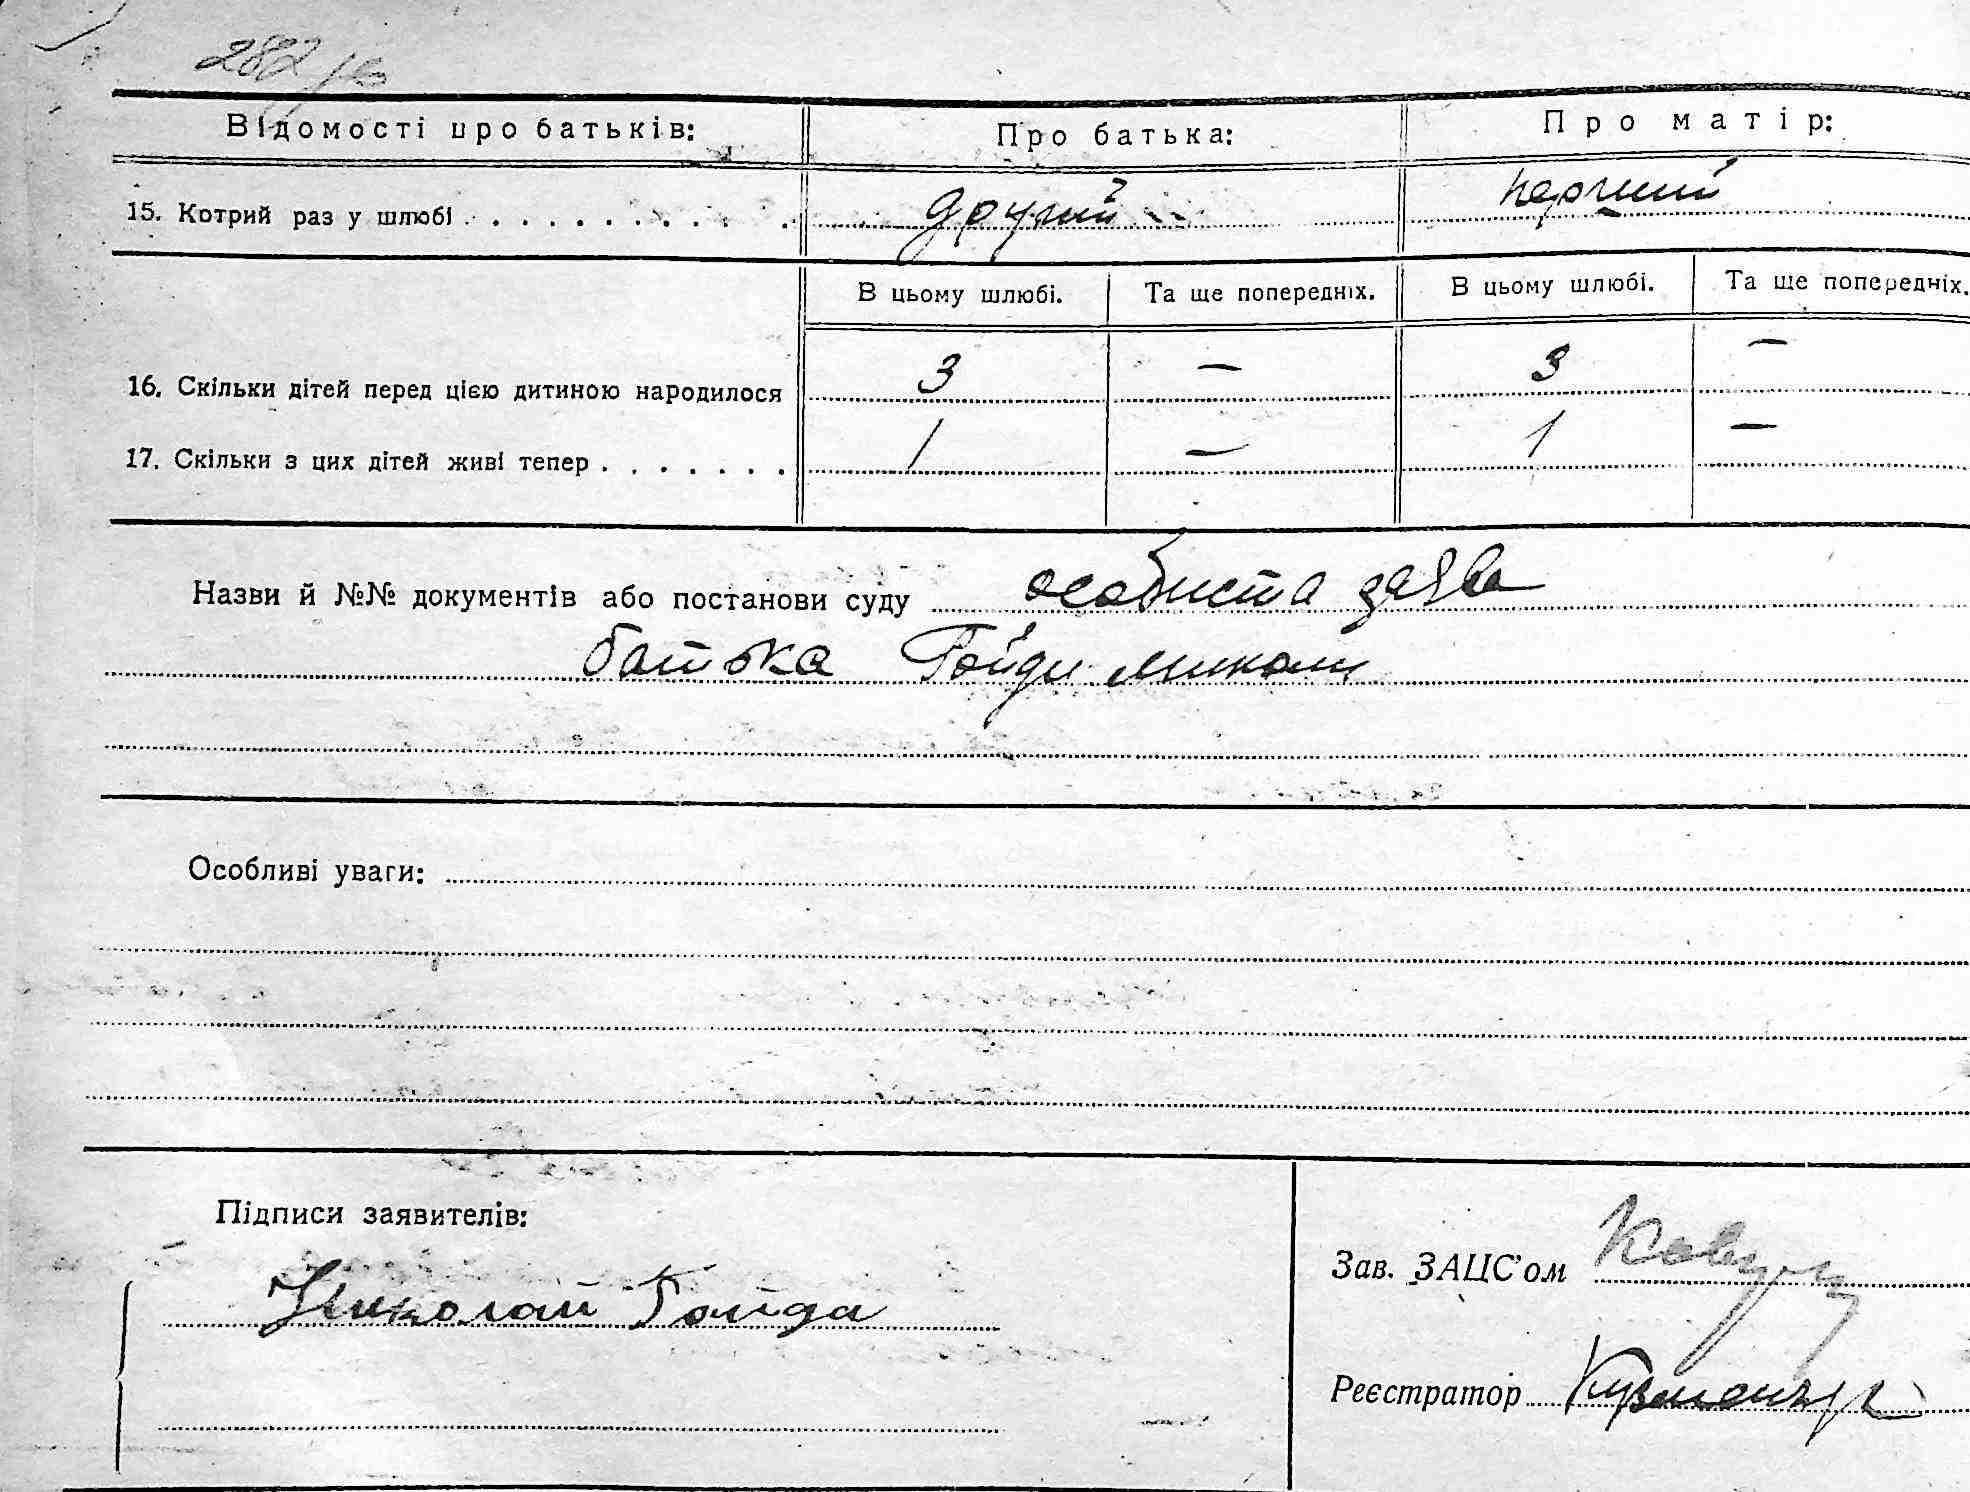 282
Відомості про батьків: Про батька: Про матір:
15. Котрий раз у шлюбі . . . . . . . . . . . . другий перший
В цьому шлюбі. Та ще попередніх. В цьому шлюбі. Та ще попередніх.
16. Скільки дітей перед цією дитиною народилося 3 — 3 —
17. Скільки з цих дітей живі тепер . . . . . . . 1 — 1 —
Назви й №№ документів або постанови суду особиста заява
батька Гойди Миколи
Особливі уваги:
Підписи заявителів:
Николай Гойда
Зав. ЗАЦС'ом Ковун
Реєстратор